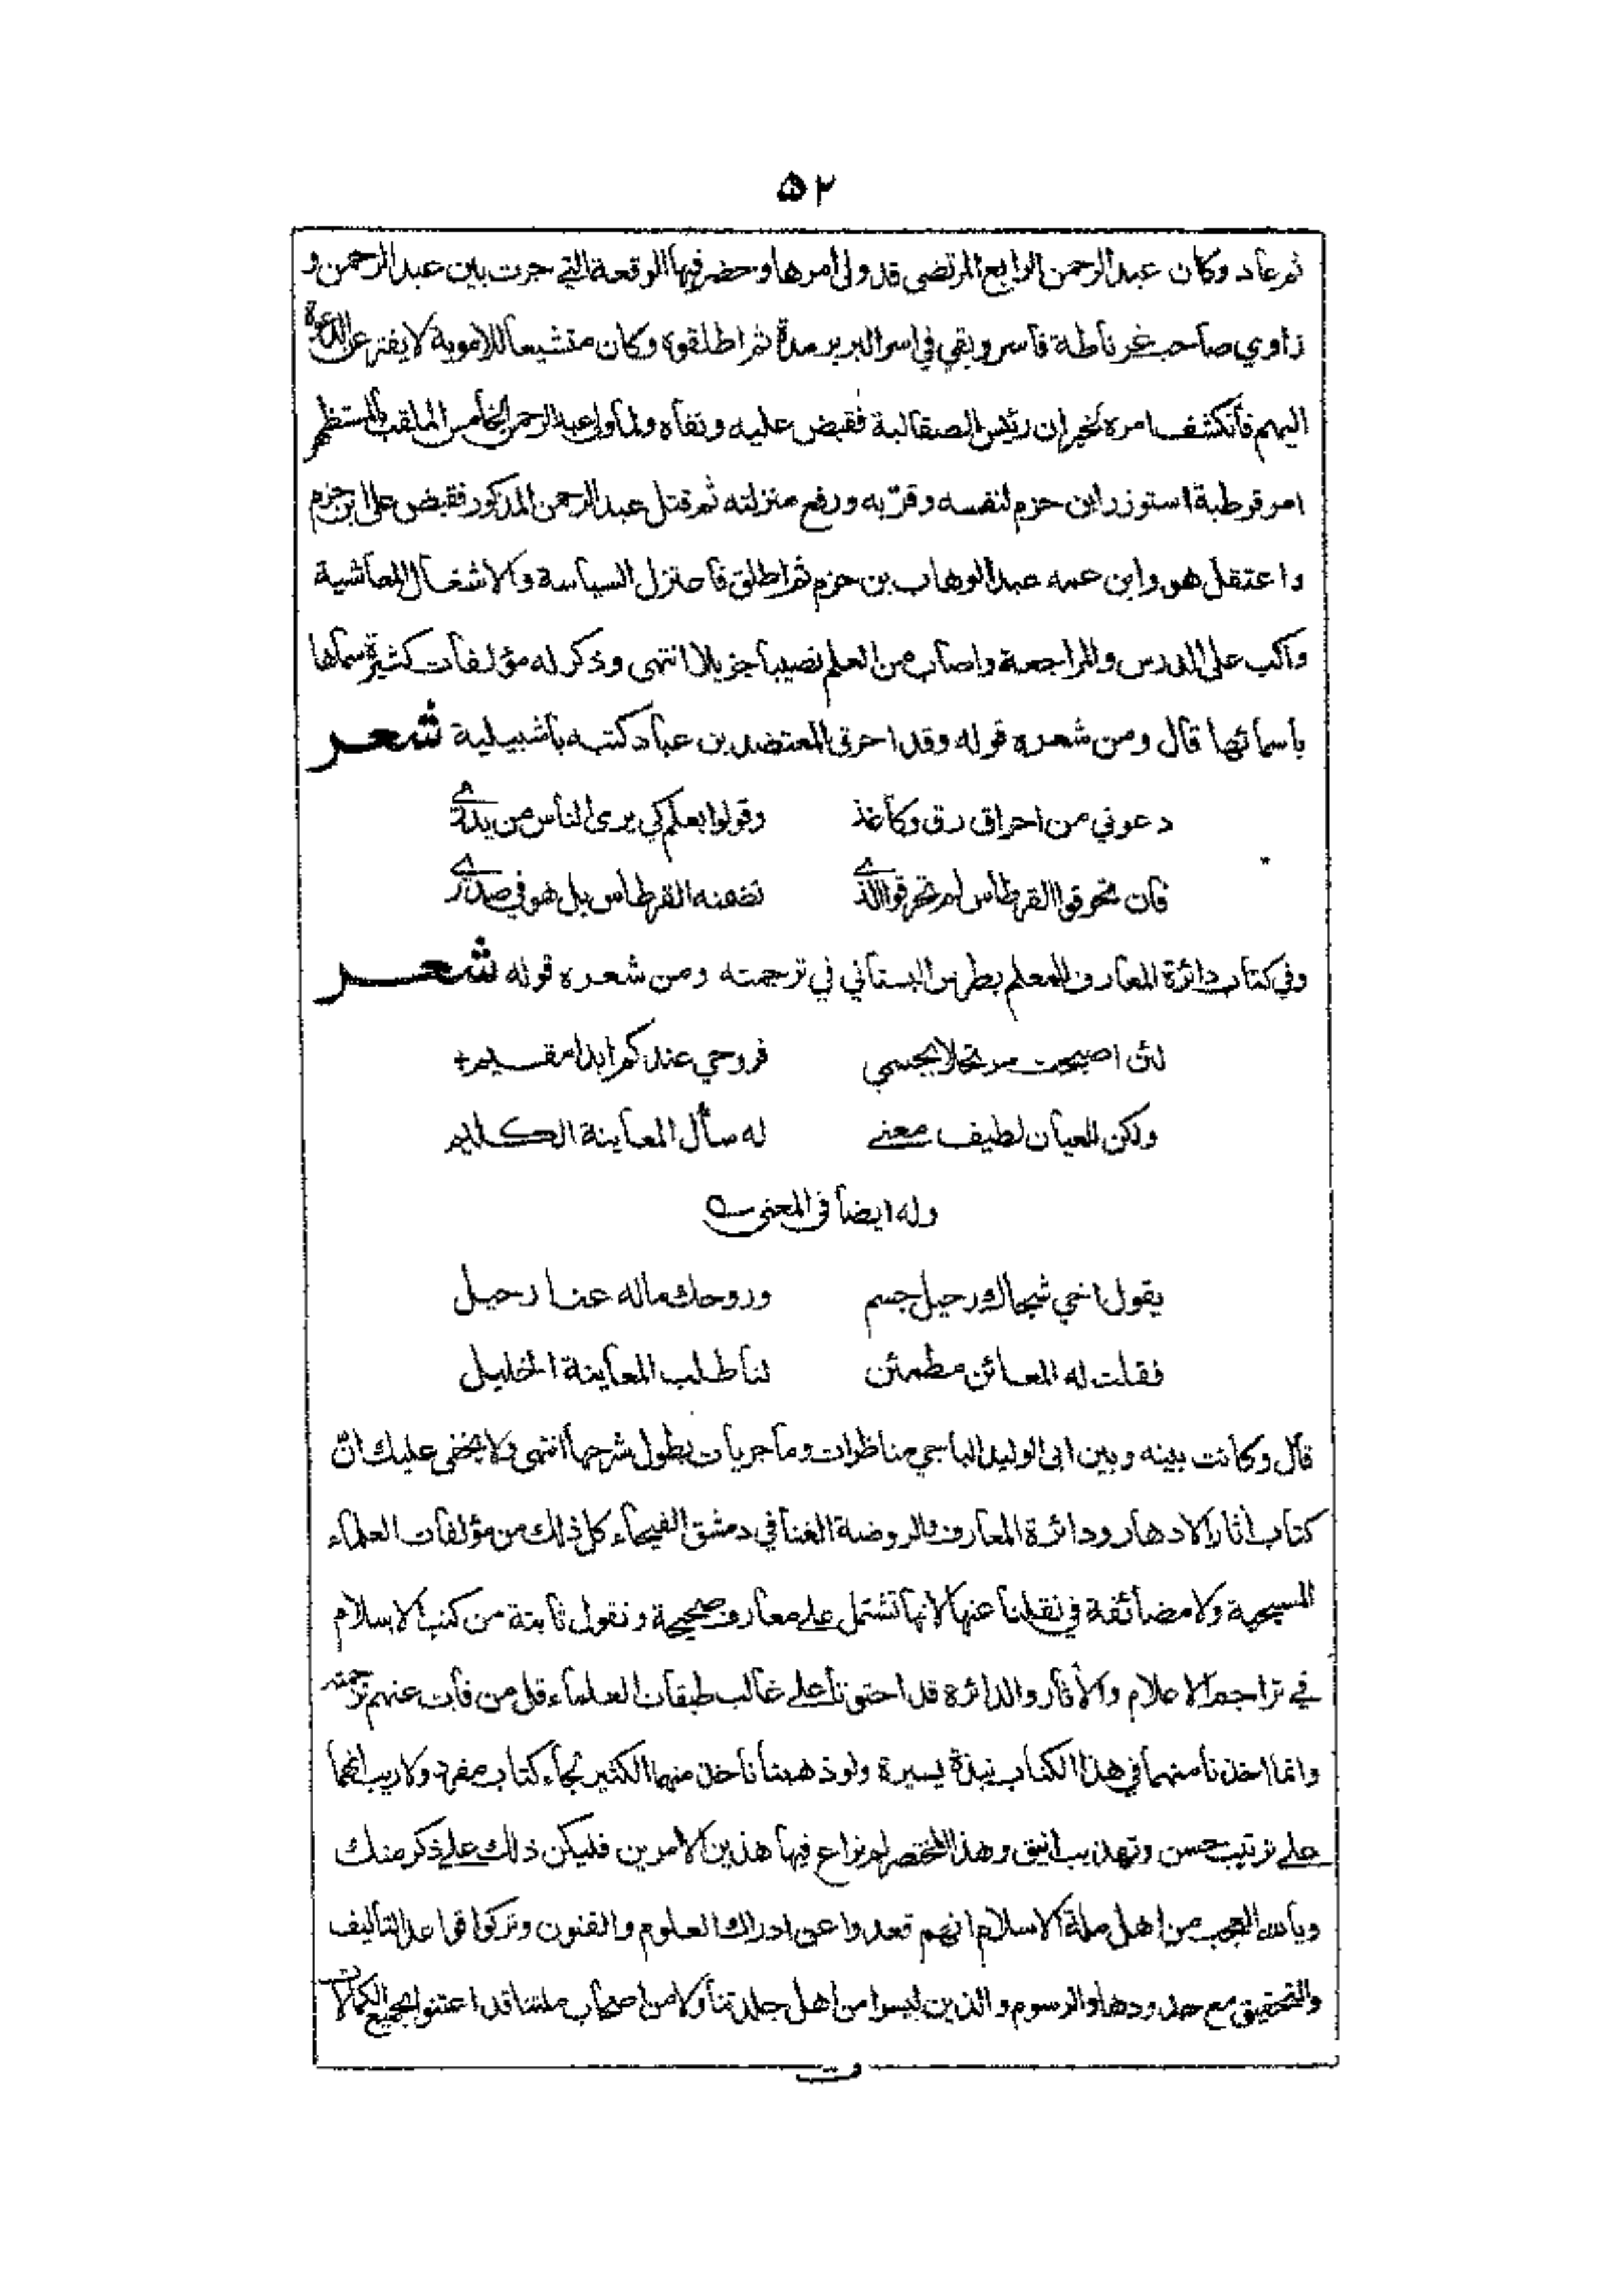 ۵۲
ثم عاد وكان عبد الرحمن الرابع المرتضى قد ولى امرها وحضر فيها الوقعة التي جرت بين عبد الرحمن و
زاوي صاحب غرناطة فأسر وبقي في اسر البربر مدة ثم اطلقوه وكان متشيعا للاموية لا يفتر عن الدعوة
اليهم فانكشف امره لخيران رئيس الصقالبة فقبض عليه ونفاه ولما ولى عبد الرحمن الخامس الملقب بالمستظهر
امر قرطبة استوزر ابن حزم لنفسه وقرّبه ورفع منزلته ثم قتل عبد الرحمن المذكور فقبض على ابن حزم
واعتقل هو وابن عمه عبد الوهاب بن حزم ثم اطلق فاعتزل السياسة والاشغال المعاشية
واكب على الدرس والمراجعة واصاب من العلم نصيبا جزيلا انتهى وذكر له مؤلفات كثيرة سماها
باسمائها قال ومن شعره قوله وقد احرق المعتضد بن عباد كتبه باشبيلية شعر
دعوني من احراق رق وكاغذ وقولوا بعلم كي يرى الناس من يدري
فان تحرقوا القرطاس لم تحرقوا الذي تضمنه القرطاس بل هو في صدري
وفي كتاب دائرة المعارف للمعلم بطرس البستاني في ترجمته ومن شعره قوله شعر
لئن اصبحت مرتحلا بجسمي فروحي عندكم ابدا مقيم
ولكن للعيان لطيف معنى له سأل المعاينة الكليم
وله ايضا في المعنى
يقول اخي شجاك رحيل جسم وروحك ماله عنا رحيل
فقلت له المعائن مطمئن لنا طلب المعاينة الخليل
قال وكانت بينه وبين ابى الوليد الباجي مناظرات وماجريات يطول شرحها انتهى ولا يخفى عليك انّ
كتاب اثار الادهار ودائرة المعارف والروضة الغنا في دمشق الفيحاء كل ذلك من مؤلفات العلماء
المسيحية ولا مضائقة في نقلنا عنها لانها تشتمل على معارف صحيحة ونقول ثابتة من كتب الاسلام
في تراجم الاعلام والأثار والدائرة قد احتوتا على غالب طبقات العلماء قل من فات عنهم ترجمته
وانما اخذنا منهما في هذا الكتاب نبذة يسيرة ولو ذهبنا ناخذ منهما الكثير لجاء كتاب مفرد ولا ريب انهما
على ترتيب حسن وتهذيب انيق وهذا المختصر لم نراع فيها هذين الامرين فليكن ذلك على ذكر منك
ويالله العجب من اهل ملة الاسلام انهم قعدوا عن ادراك العلوم والفنون وتركوا قواعد التاليف
والتحقيق مع حدودها والرسوم والذين ليسوا من اهل جلدتنا ولا من اصحاب ملتنا قد اعتنوا بجميع الكمالات